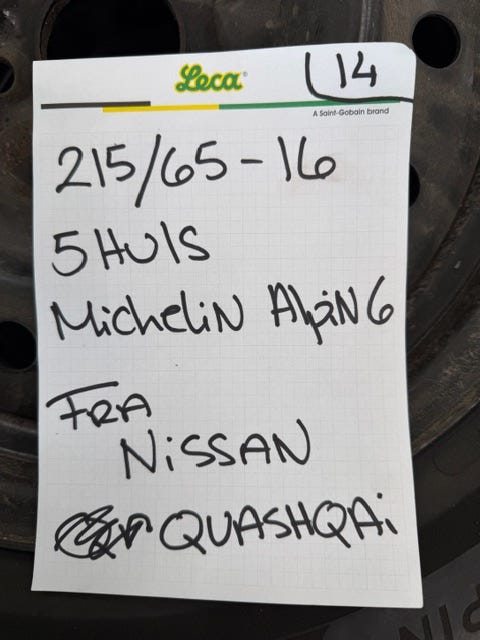 Leca
14
A Saint-Gobain brand
215/65-16
5 HUlS
MichelIN AlpiN 6
FRA
NiSSAN
QUASHQAi
PIN